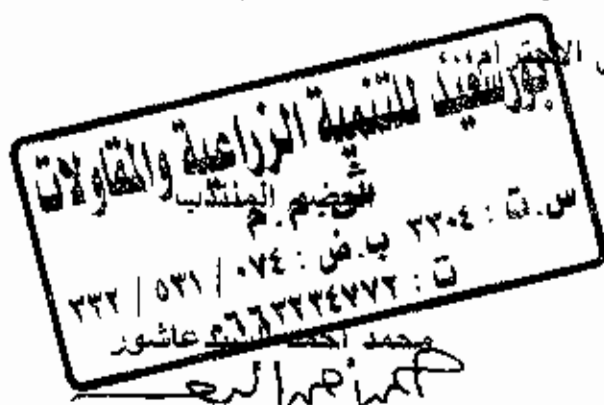 الاحترام،،،
بورسعيد للتنمية الزراعية والمقاولات
ش.م.م
العضو المنتدب
س.ت : ٣٣٠٤ ب.ض : ٠٧٤ / ٥٣١ / ٣٣٢
ت : ٠٦٦٣٢٣٤٧٧٢
محمد أحمد السيد عاشور